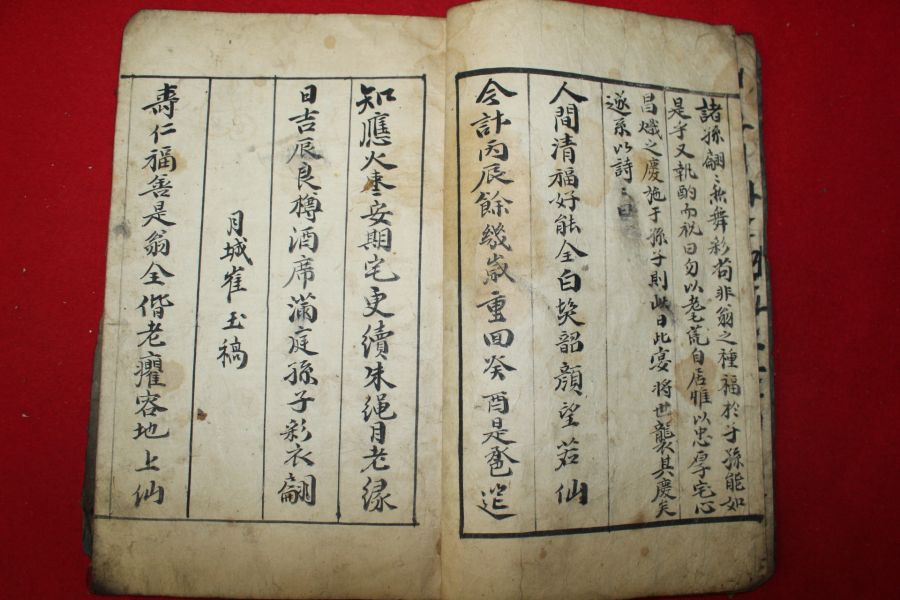 諸孫翩〻飛舞彩苟非翁之種福於子孫能如
是乎又執酌而祝曰勿以老耄荒自居惟以忠厚宅心
昌熾之慶施于孫子則此日此宴將世襲其慶矣
遂系以詩〻曰
人間清福好能全白髮韶顔望若仙
今計丙辰餘幾歲重回癸酉是卺筵
知應火棗安期宅更續朱绳月老緣
日吉辰良樽酒席滿庭孫子彩衣翩
月城崔玉稿
壽仁福善是翁全偕老癯容地上仙